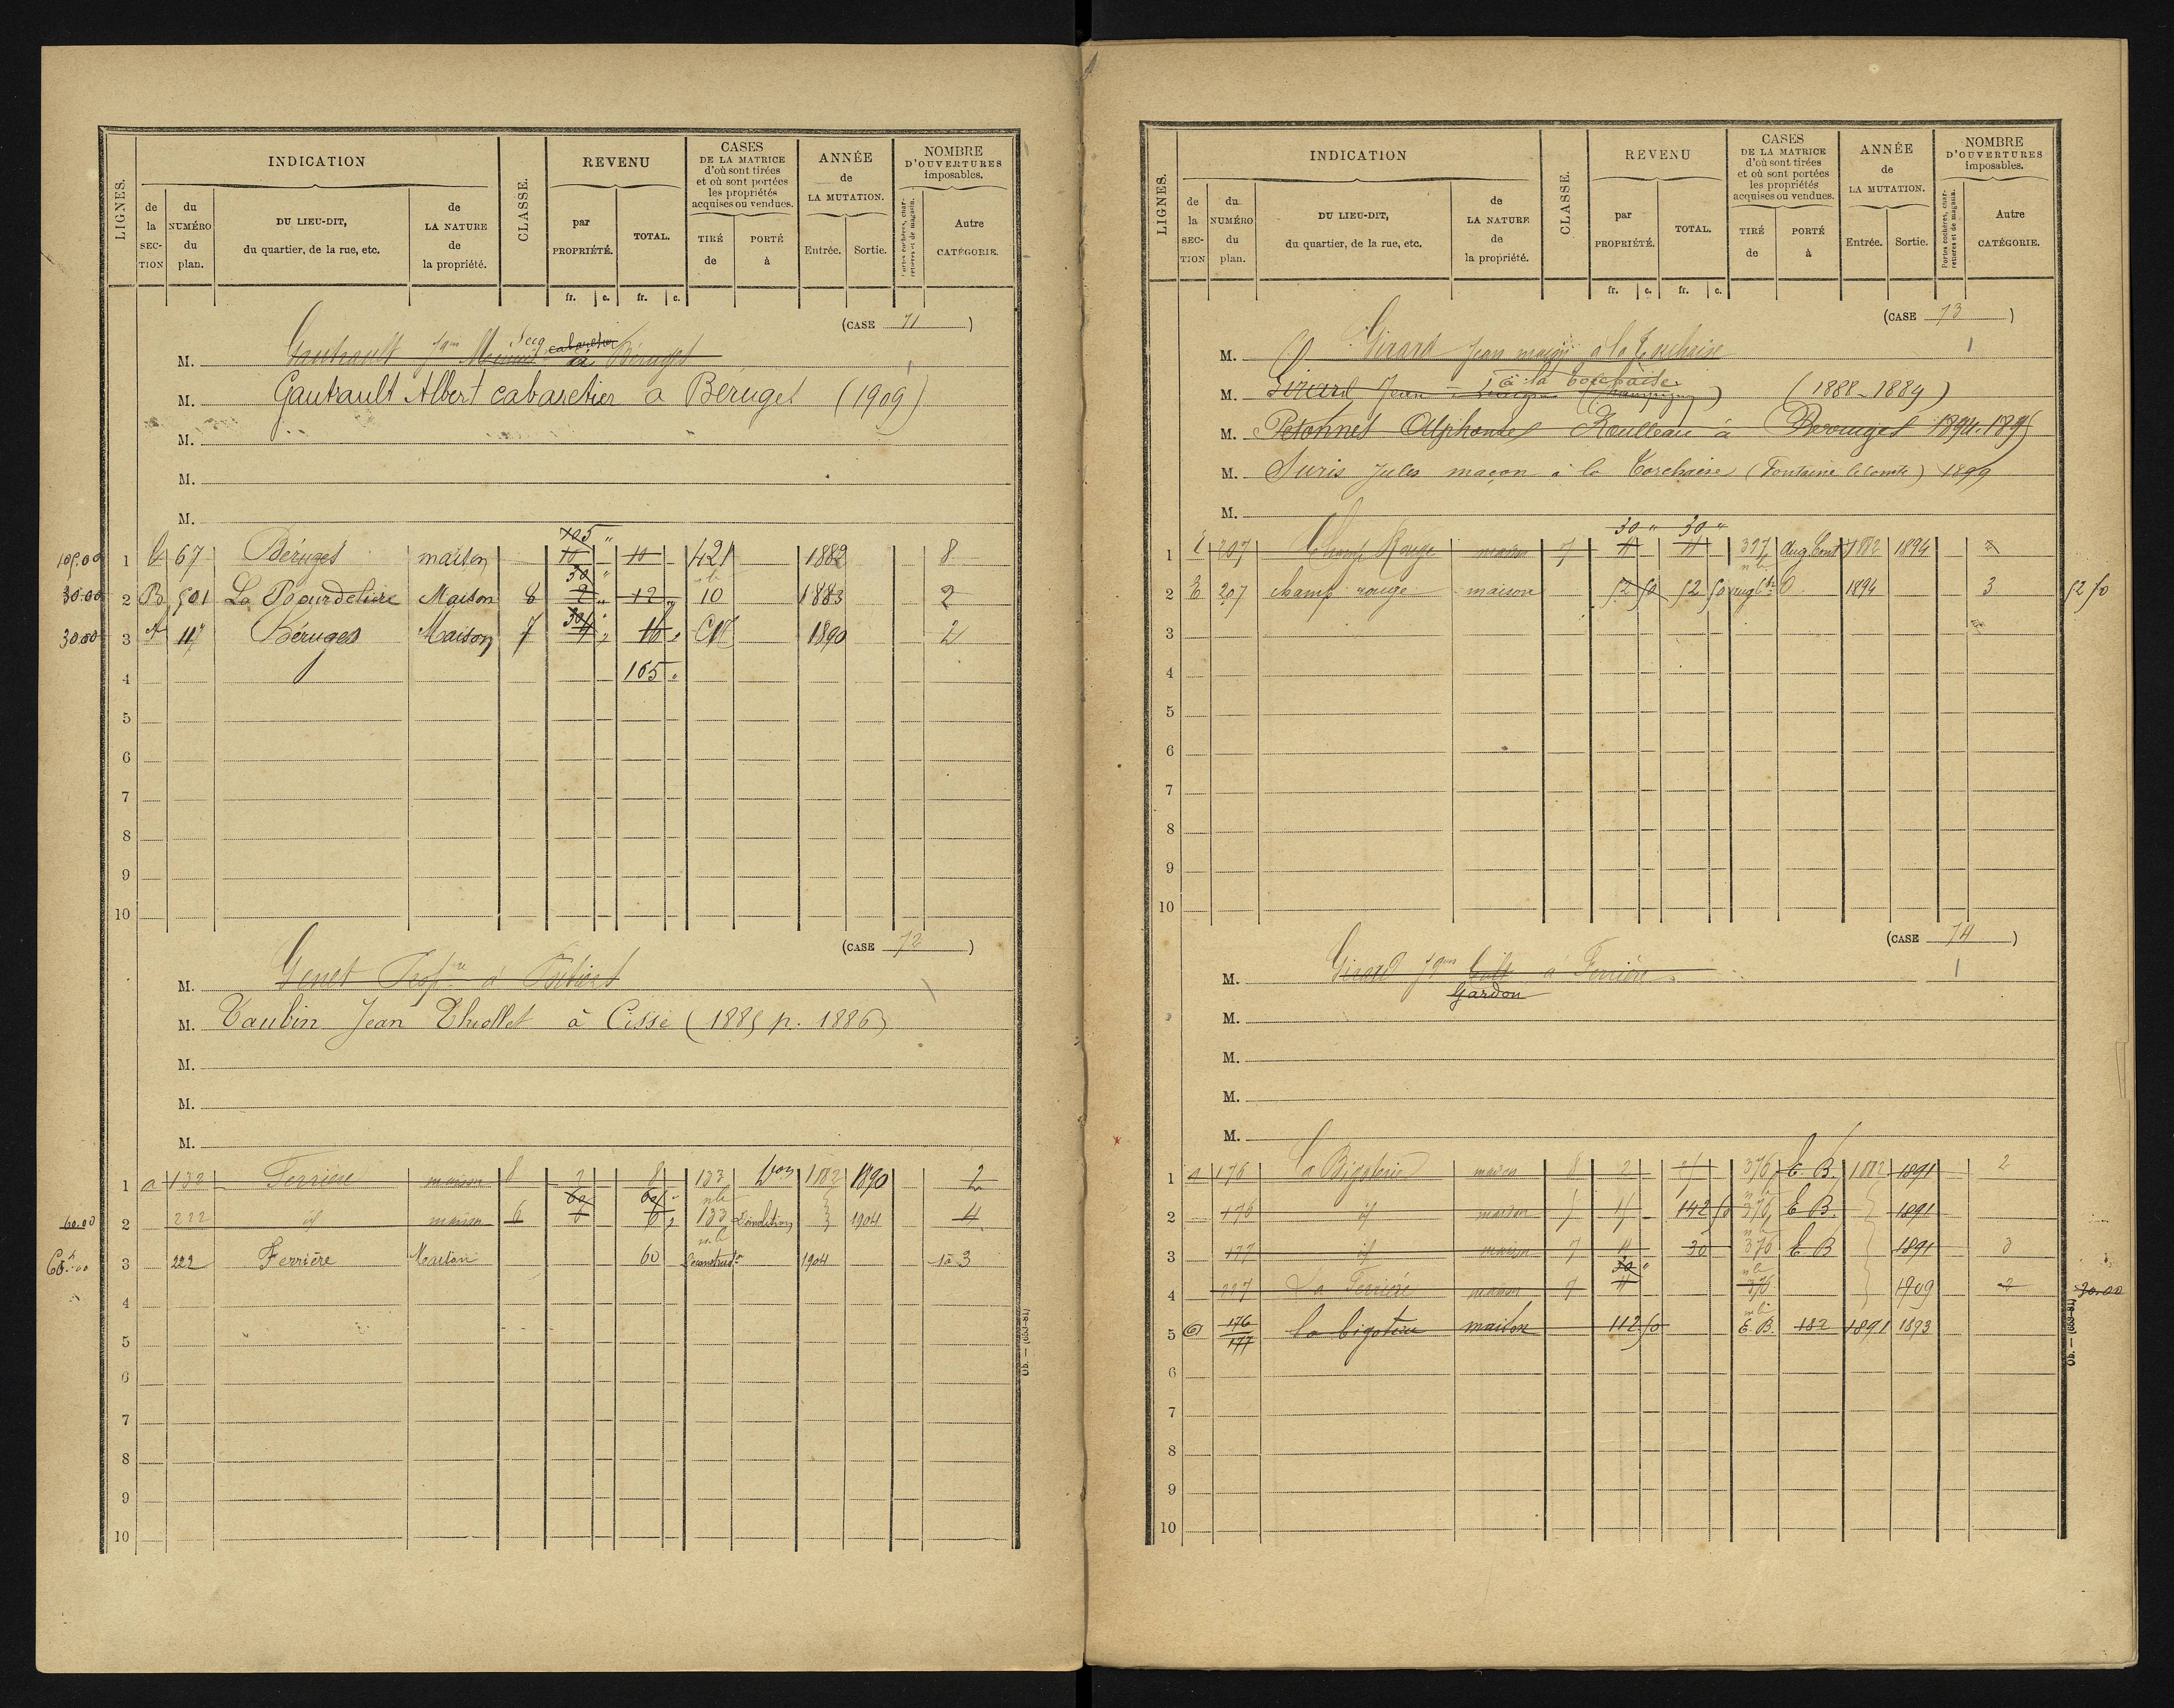 LIGNES.
INDICATION
de la SECTION
du NUMÉRO du plan.
DU LIEU-DIT, du quartier, de la rue, etc.
de LA NATURE de la propriété.
CLASSE.
REVENU
par PROPRIÉTÉ.
TOTAL.
fr. c. fr. c.
CASES DE LA MATRICE d'où sont tirées et où sont portées les propriétés acquises ou vendues.
TIRÉ de
PORTÉ à
ANNÉE de LA MUTATION.
Entrée. Sortie.
NOMBRE D'OUVERTURES imposables.
Portes cochères, charretières et de magasin.
Autre CATÉGORIE.
(CASE 71)
M. Gautrault cabaretier à Béruges
M. Gautrault Albert cabaretier a Béruges (1909)
M.
M.
M.
105.00 1 67 Béruges maison 105 " 10 10 421 1882 8
30.00 2 B 501 La Bourdeliere Maison 8 30 " 2 " 12 " 10 1883 2
30.00 3 117 Béruges Maison 7 30 4 " 16 " 1890 2
4 165 "
5
6
7
8
9
10
(CASE 72)
M. Genet à Poitiers
M. Taubin Jean Thiollet à Cissé (1885 p. 1886)
M.
M.
M.
1 a 133 Ferrière maison 8 2 8 133 1882 1890 2
60.00 2 222 id maison 6 60 6 60 6 " 133 Démolition 1904 4
3 222 Ferrière Maison 60 1904 3
4
5
6
7
8
9
10
Ob. — (653-81)
LIGNES.
INDICATION
de la SECTION
du NUMÉRO du plan.
DU LIEU-DIT, du quartier, de la rue, etc.
de LA NATURE de la propriété.
CLASSE.
REVENU
par PROPRIÉTÉ.
TOTAL.
fr. c. fr. c.
CASES DE LA MATRICE d'où sont tirées et où sont portées les propriétés acquises ou vendues.
TIRÉ de
PORTÉ à
ANNÉE de LA MUTATION.
Entrée. Sortie.
NOMBRE D'OUVERTURES imposables.
Portes cochères, charretières et de magasin.
Autre CATÉGORIE.
(CASE 73)
M. Girard Jean maçon à la Torchaise
M. Girard Jean à la Torchaise (Champigny) (1888-1889)
M. Petonnet Alphonse Roulleau à Beruges 1894.1895
M. Suris Jules maçon à la Torchaise (Fontaine lecomte) 1899
M.
1 E 207 Champ Rouge maison 7 30 " 4 30 " 4 397 1882 1894 2
2 E 207 champ rouge maison 52 50 52 50 1894 3 52 50
3
4
5
6
7
8
9
10
(CASE 74)
M. Girard à Ferrière
Gardon
M.
M.
M.
M.
1 a 176 La Bigoterie maison 8 2 376 E. B. 1882 1891 2
2 176 id maison 7 142 50 376 E B. 1891
3 177 id maison 7 4 30 376 E B 1891 3
4 227 La Ferrière maison 7 30 " 4 376 1909 2 30.00
5 176 177 la bigoterie maison 112 50 E. B. 182 1891 1893
6
7
8
9
10
Ob. — (653-81)